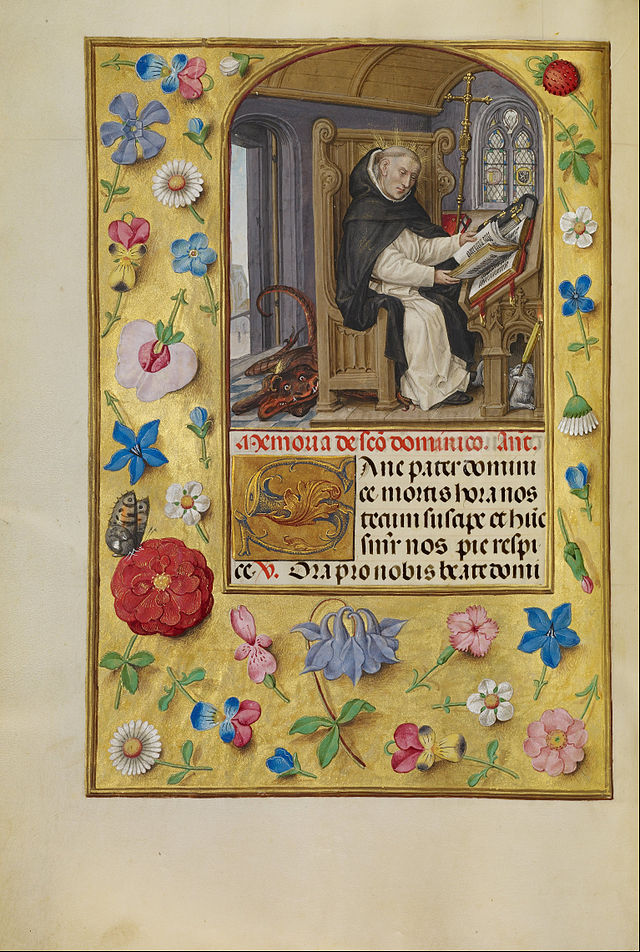 Memoria de sc̄o dominico. Ant̄.
Sane pater domini
ce mortis hora nos
tecum suscipe et hūc
sm̄r nos pie respi
ce. V. Ora pro nobis beate domi